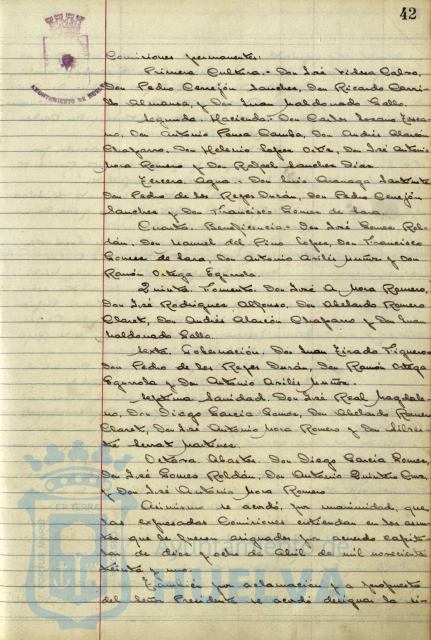 42
AYUNTAMIENTO DE HUELVA
Comisiones permanentes:
Primera Cultura.- Don José Vidosa Calvo,
Don Pedro Cerrejón Sanchez, Don Ricardo Carri-
llo Almansa, y Don Juan Maldonado Gallo.
Segunda.- Hacienda.- Don Carlos Lozano
Don Antonio Ponce Gamba, Don Andrés Alarcón
Chaparro, Don Helenio Lopez Ortiz, Don José Antonio
Mora Romero y Don Rafael Sanchez Diaz.
Tercera Agua.- Don Luis
Don Pedro de los Reyes Durán, Don Pedro Cerrejón
Sanchez y Don Francisco Gomez de Lara.
Cuarta. Beneficencia.- Don José Gomez Rol-
dán, Don Manuel del Pino Lopez, Don Francisco
Gomez de Lara, Don Antonio Avilés Muñoz y Don
Ramón Ortega Egurrola.
Quinta Fomento. Don José A Mora Romero,
Don José Rodriguez Alfonso, Don Abelardo Romero
Claret, Don Andrés Alarcón Chaparro y Don Juan
Maldonado Gallo.
Sexta. Gobernación. Don Juan Tirado Figueroa
Don Pedro de los Reyes Durán, Don Ramón Ortega
Egurrola y Don Antonio Avilés Muñoz.
Septima Sanidad. Don José Real Magdale-
no, Don Diego Garcia Gomez, Don Abelardo Romero
Claret, Don José Antonio Mora Romero y Don Silves-
tre Serrat Martinez.
Octava Abastos. Don Diego Garcia Gomez,
Don José Gomez Roldán, Don Antonio Quintero
y Don José Antonio Mora Romero.
Asimismo se acordó, por unanimidad, que
las expresadas Comisiones entiendan en los asun-
tos que le fueron asignados por acuerdo capitu-
lar de diez y ocho de Abril de mil novecientos
treinta y uno.
También por aclamación y a propuesta
del Señor Presidente se acordó designar la
Ayuntamiento de
HUELVA